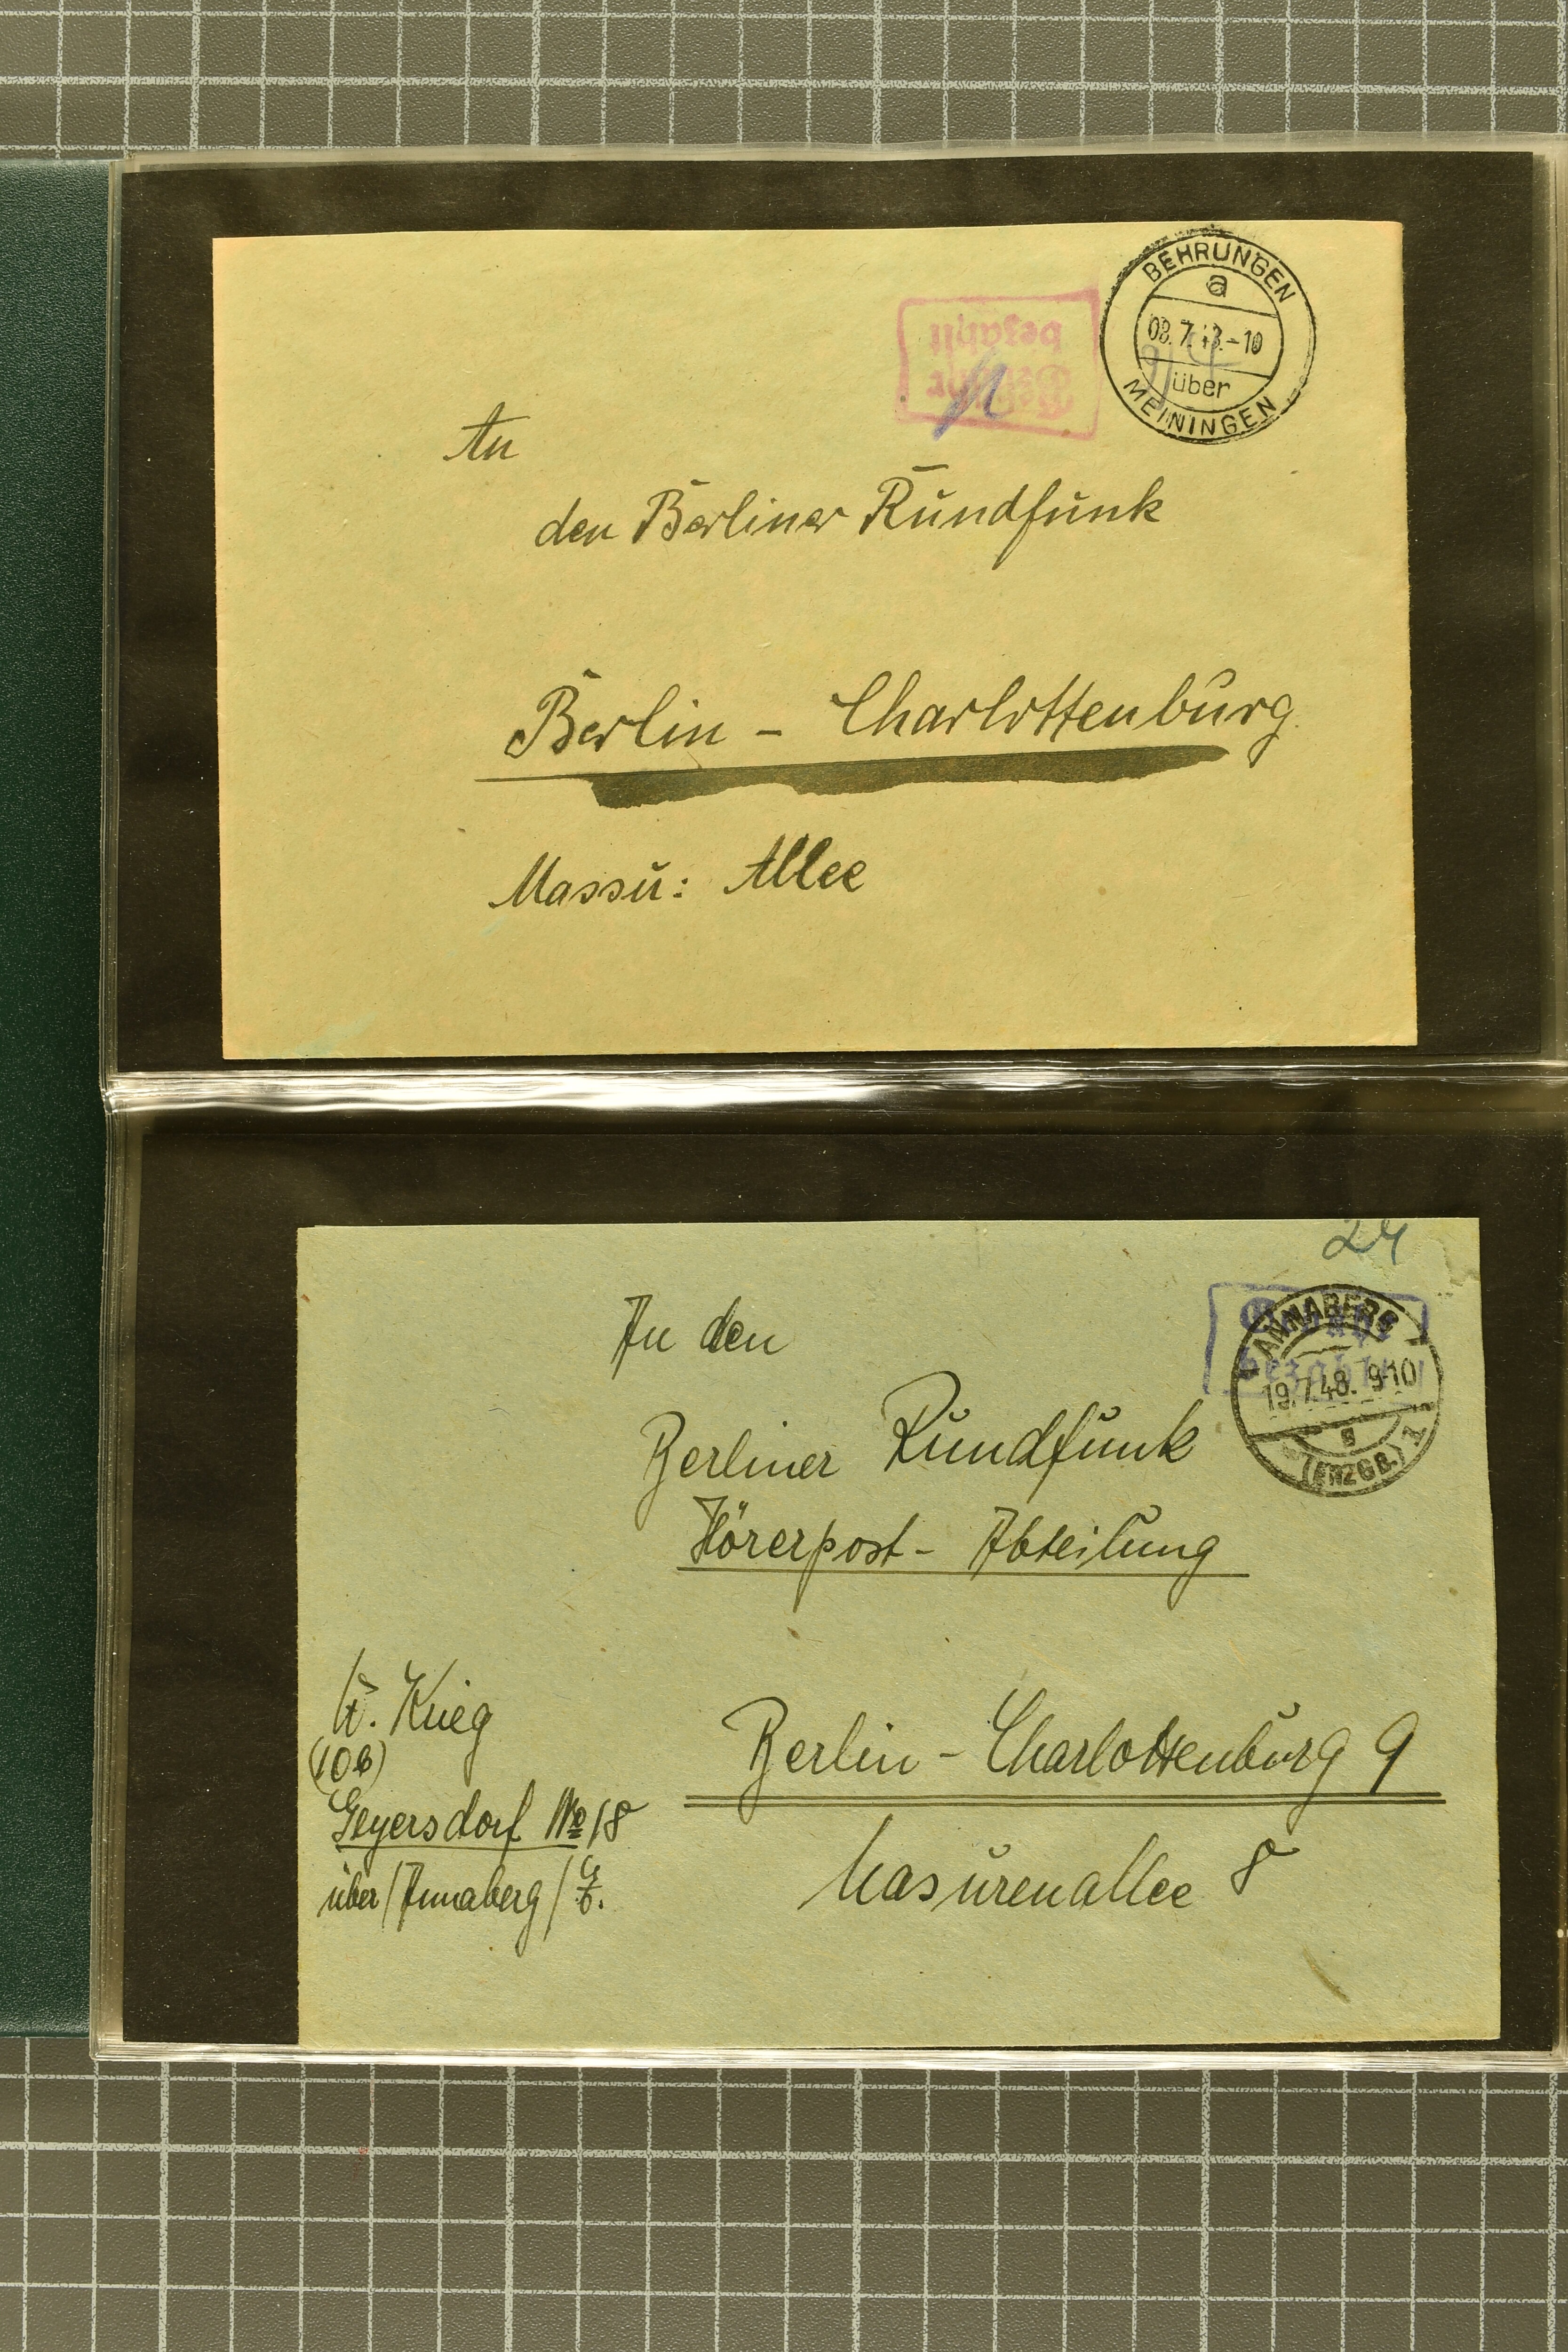 BEHRUNGEN
a
-10
über
MEININGEN
Gebühr
bezahlt
An
den Berliner Rundfunk
Berlin - Charlottenburg
Massu: Allee
24
ANNABERG
19.7.48. 9-10
g
(ERZGEB.) 1
bezahlt
An den
Berliner Rundfunk
Hörerpost - Abteilung
Krieg
(10b)
Geyersdorf No 18
über/Annaberg/
Berlin - Charlottenburg 9
Masurenallee 8